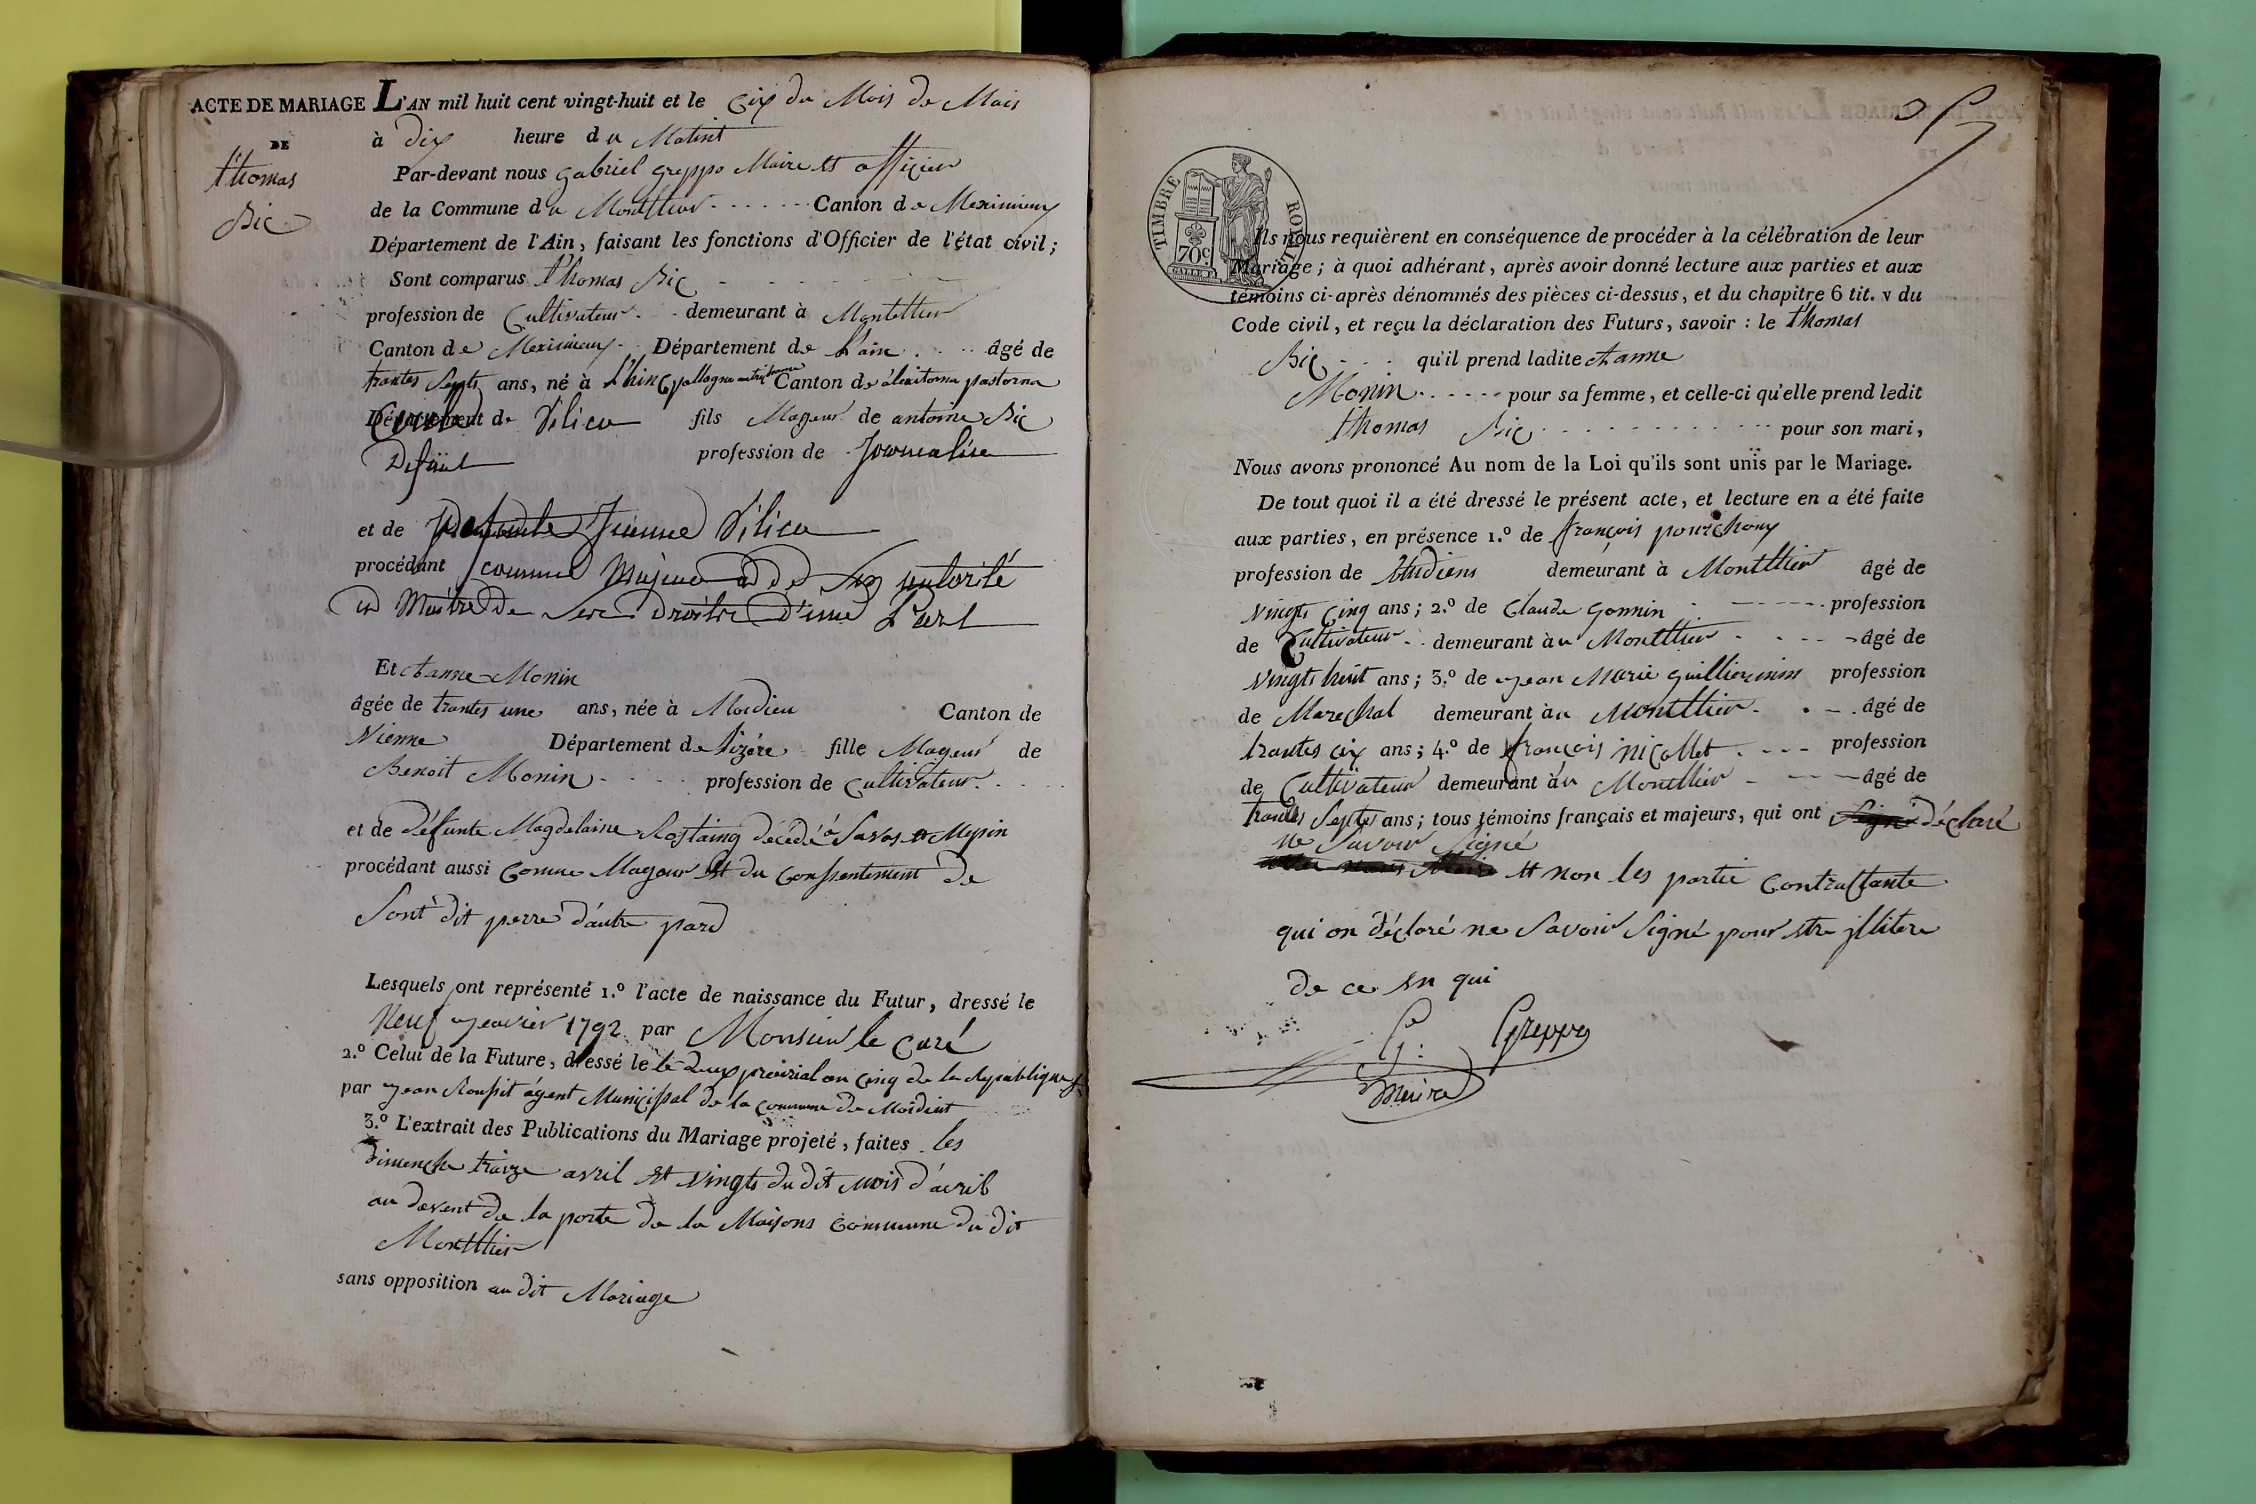 ACTE DE MARIAGE L'AN mil huit cent vingt-huit et le cix du Mois de Mais
DE
à dix heure du Matint
thomas
Par-devant nous gabriel greppo Maire et officier
Bic
de la Commune du Montllier Canton de Meximieux
Département de l'Ain, faisant les fonctions d'Officier de l'état civil;
Sont comparus thomas Bic
profession de Cultivateur demeurant à Montellier
Canton de Meximieux Département de L'ain âgé de
trantes Septs ans, né à Canton de
Département de Silica fils Mageur de antoine Bic
Defünt profession de Journalise
et de Silica
procédant comme Majeur de Son autorité
et Maitre De Ses Droits D'une Part
Et Anne Monin
âgée de trantes une ans, née à Moidieu Canton de
Vienne Département de lizére fille Mageur de
Benoit Monin profession de Cultivateur
et de défunte Magdelaine Rostaing décédé à Savas et Mepin
procédant aussi Comme Mageur Et du Conssentement de
Sont dit perre d'autre pard
Lesquels ont représenté 1.º l'acte de naissance du Futur, dressé le
Neuf Jeanvier 1792 par Monsieur le Curé
2.º Celui de la Future, dressé le le Deux preirial an Cinq de la Republique
par Jean agent Municipal de la Commune de Moidieut
3.º L'extrait des Publications du Mariage projeté, faites les
Dimenche traize avril et vingts du dit mois d'avril
au devent de la porte de la Maisons Commune du dit
Montllier
sans opposition au dit Mariage
TIMBRE ROYAL
70c.
Ils nous requièrent en conséquence de procéder à la célébration de leur
Mariage; à quoi adhérant, après avoir donné lecture aux parties et aux
témoins ci-après dénommés des pièces ci-dessus, et du chapitre 6 tit. v du
Code civil, et reçu la déclaration des Futurs, savoir : le thomas
Bic qu'il prend ladite Anne
Monin pour sa femme, et celle-ci qu'elle prend ledit
thomas Bic pour son mari,
Nous avons prononcé Au nom de la Loi qu'ils sont unis par le Mariage.
De tout quoi il a été dressé le présent acte, et lecture en a été faite
aux parties, en présence 1.º de françois pourchoux
profession de Etudiens demeurant à Montllier âgé de
vingts Cinq ans; 2.º de Claude gonnin profession
de Cultivateur demeurant à u Montllier âgé de
vingts huit ans; 3.º de Jean Marie profession
de Marechal demeurant à u Montllier âgé de
trantes cix ans; 4.º de françois nicollet profession
de Cultivateur demeurant à u Montllier âgé de
trantes Septes ans; tous témoins français et majeurs, qui ont déclaré
ne Savoir Signé
et non les partie Contractante
qui on déclaré ne Savoir Signé pour etre jllitere
de ce en qui
G: Greppo
maire